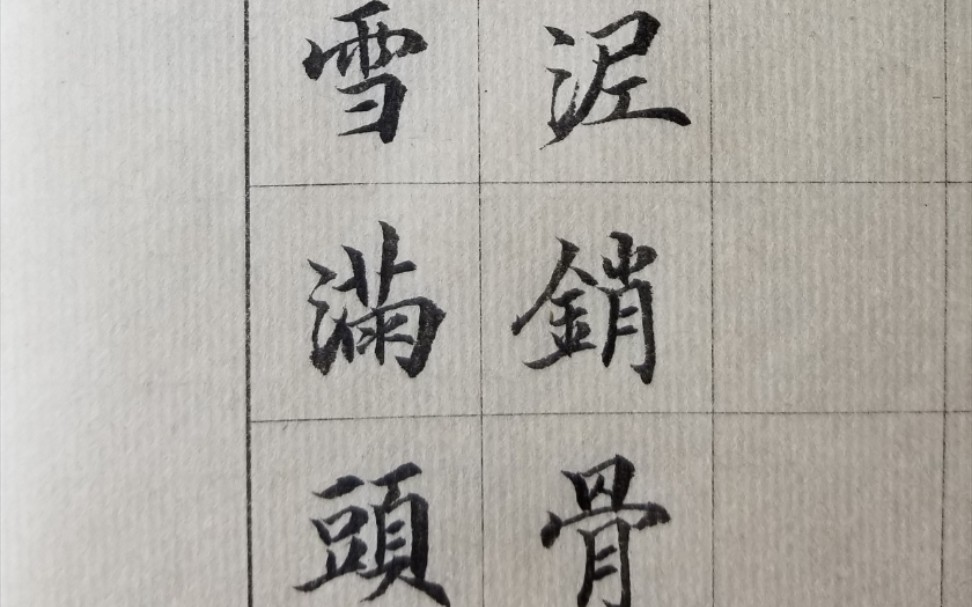 泥銷骨
雪滿頭